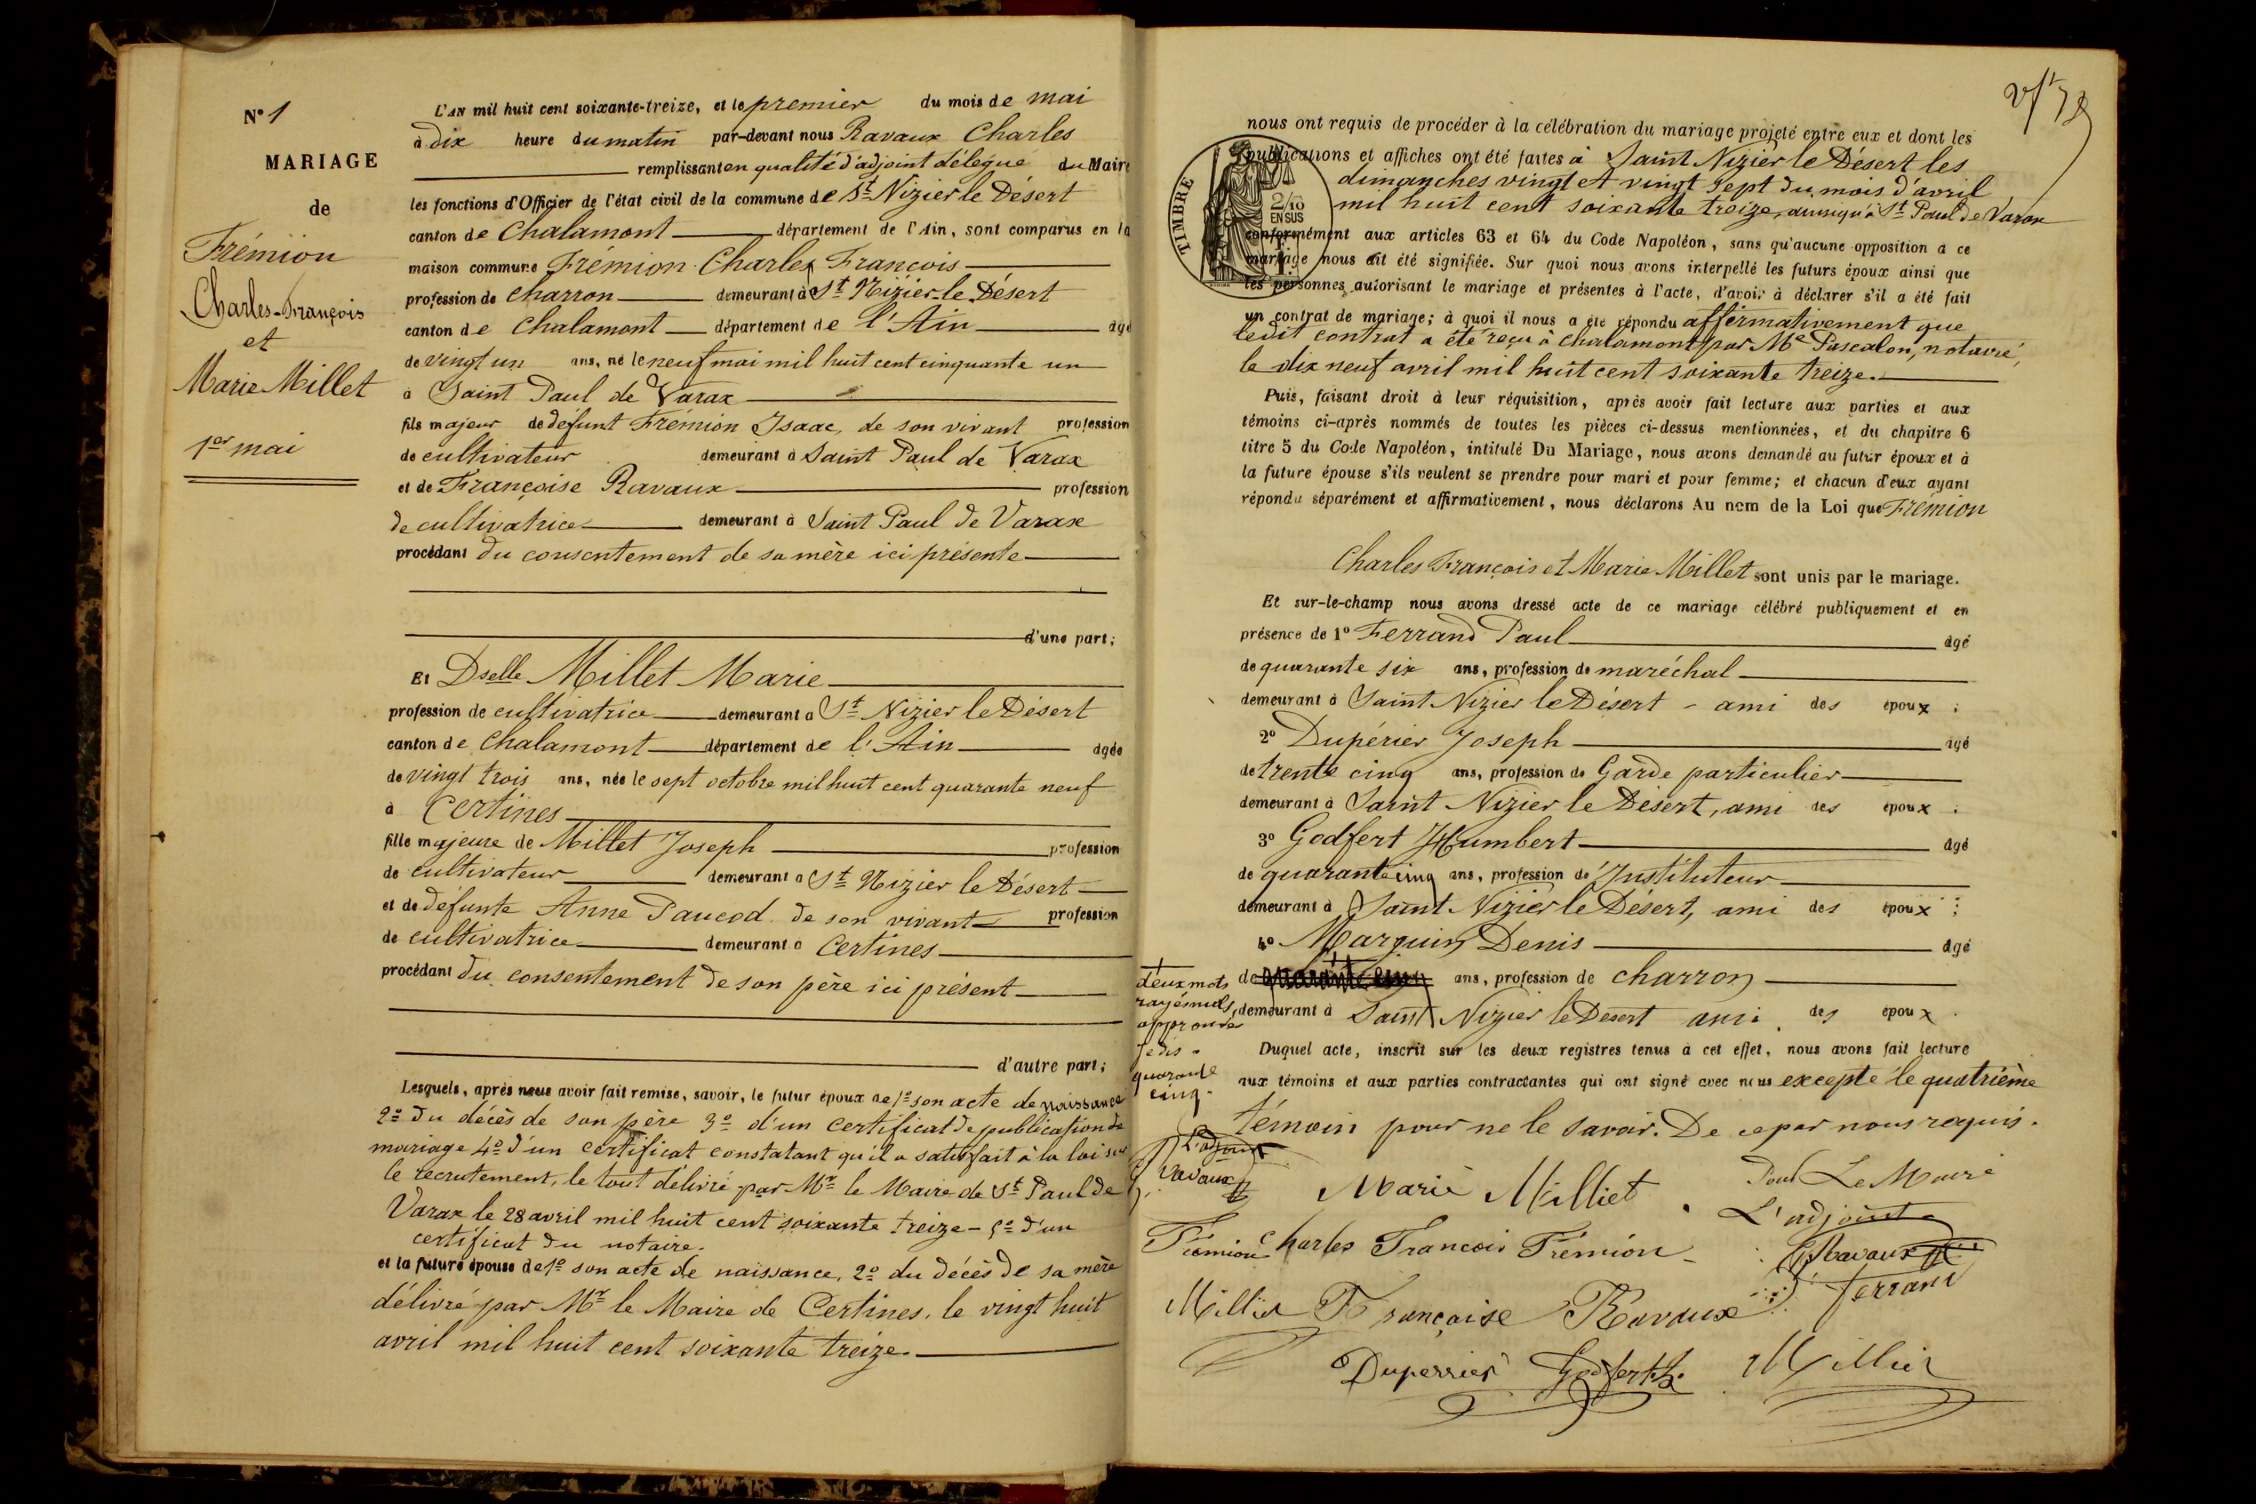 N° 1
MARIAGE
de
Frémion
Charles-François
et
Marie Millet
1er mai
L'AN mil huit cent soixante-treize, et le premier du mois de mai
à dix heure du matin par-devant nous Ravaux Charles
remplissant en qualité d'adjoint délegue du Maire
les fonctions d'Officier de l'état civil de la commune de St Nizier le Désert
canton de Chalamont département de l'Ain, sont comparus en la
maison commune Frémion Charles François
profession de charron demeurant à St Nizier-le Désert
canton de Chalamont département de l'Ain agé
de vingt un ans, né le neuf mai mil huit cent cinquante un
à Saint Paul de Varax
fils majeur de défunt Frémion Isaac, de son vivant profession
de cultivateur demeurant à Saint Paul de Varax
et de Françoise Ravaux profession
de cultivatrice demeurant à Saint Paul de Varax
procédant du consentement de sa mère ici présente
d'une part;
Et Dselle Millet Marie
profession de cultivatrice demeurant à St Nizier le Désert
canton de Chalamont département de l'Ain agée
de vingt trois ans, née le sept octobre mil huit cent quarante neuf
à Certines
fille majeure de Millet Joseph profession
de cultivateur demeurant à St Nizier le Désert
et de défunte Anne Paucod de son vivant profession
de cultivatrice demeurant à Certines
procédant du consentement de son père ici présent
d'autre part;
Lesquels, après nous avoir fait remise, savoir, le futur époux de 1° son acte de naissance
2° du décès de son père 3° d'un certificat de publication de
mariage 4° d'un certificat constatant qu'il a satisfait à la loi sur
le recrutement, le tout délivré par Mr le Maire de St Paul de
Varax le 28 avril mil huit cent soixante treize - 5° d'un
certificat du notaire.
et la future épouse de 1° son acte de naissance, 2° du décès de sa mère
délivré par Mr le Maire de Certines, le vingt huit
avril mil huit cent soixante treize.
nous ont requis de procéder à la célébration du mariage projeté entre eux et dont les
publications et affiches ont été faites à Saint Nizier le Désert les
dimanches vingt et vingt sept du mois d'avril
mil huit cent soixante treize, ainsi qu'à St Paul de Varax
TIMBRE
2/10
EN SUS
conformément aux articles 63 et 64 du Code Napoléon, sans qu'aucune opposition à ce
mariage nous ait été signifiée. Sur quoi nous avons interpellé les futurs époux ainsi que
les personnes autorisant le mariage et présentes à l'acte, d'avoir à déclarer s'il a été fait
un contrat de mariage; à quoi il nous a été répondu affirmativement que
ledit contrat a été reçu à Chalamont par Me Pascalon, notaire,
le dix neuf avril mil huit cent soixante treize.
Puis, faisant droit à leur réquisition, après avoir fait lecture aux parties et aux
témoins ci-après nommés de toutes les pièces ci-dessus mentionnées, et du chapitre 6
titre 5 du Code Napoléon, intitulé Du Mariage, nous avons demandé au futur époux et à
la future épouse s'ils veulent se prendre pour mari et pour femme; et chacun d'eux ayant
répondu séparément et affirmativement, nous déclarons Au nom de la Loi que Frémion
Charles François et Marie Millet sont unis par le mariage.
Et sur-le-champ nous avons dressé acte de ce mariage célébré publiquement et en
présence de 1° Ferrand Paul agé
de quarante six ans, profession de maréchal
demeurant à Saint Nizier le Désert - ami des époux ;
2° Dupérier Joseph agé
de trente cinq ans, profession de Garde particulier
demeurant à Saint Nizier le Désert, ami des époux ;
3° Godfert Humbert agé
de quarante cinq ans, profession de Instituteur
demeurant à Saint Nizier le Désert, ami des époux ;
4° Marguin Denis agé
de quarante cinq ans, profession de charron
demeurant à Saint Nizier le Désert ami des époux .
deux mots
rayés nuls
approuvés
je dis -
quarante
cinq.
L'adjoint
Ravaux
Duquel acte, inscrit sur les deux registres tenus à cet effet, nous avons fait lecture
aux témoins et aux parties contractantes qui ont signé avec nous excepté le quatrième
témoin pour ne le savoir. De ce par nous requis.
Marie Milliet Pour Le Maire
L'adjoint
Frémion Charles Francois Frémion Ravaux
Ferrand
Milliet Françoise Ravaux
Duperrier Godfert h. Milliet